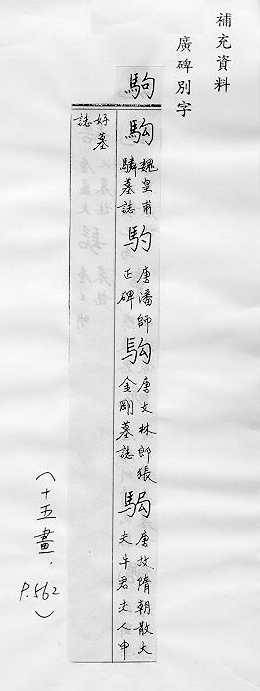 補充資料
廣碑別字
駒
魏皇甫
驎墓誌
唐潘師
正碑
唐文林郎張
金剛墓誌
唐故隋朝散大
夫牛君夫人申
好墓
誌
(十五畫, P.562)